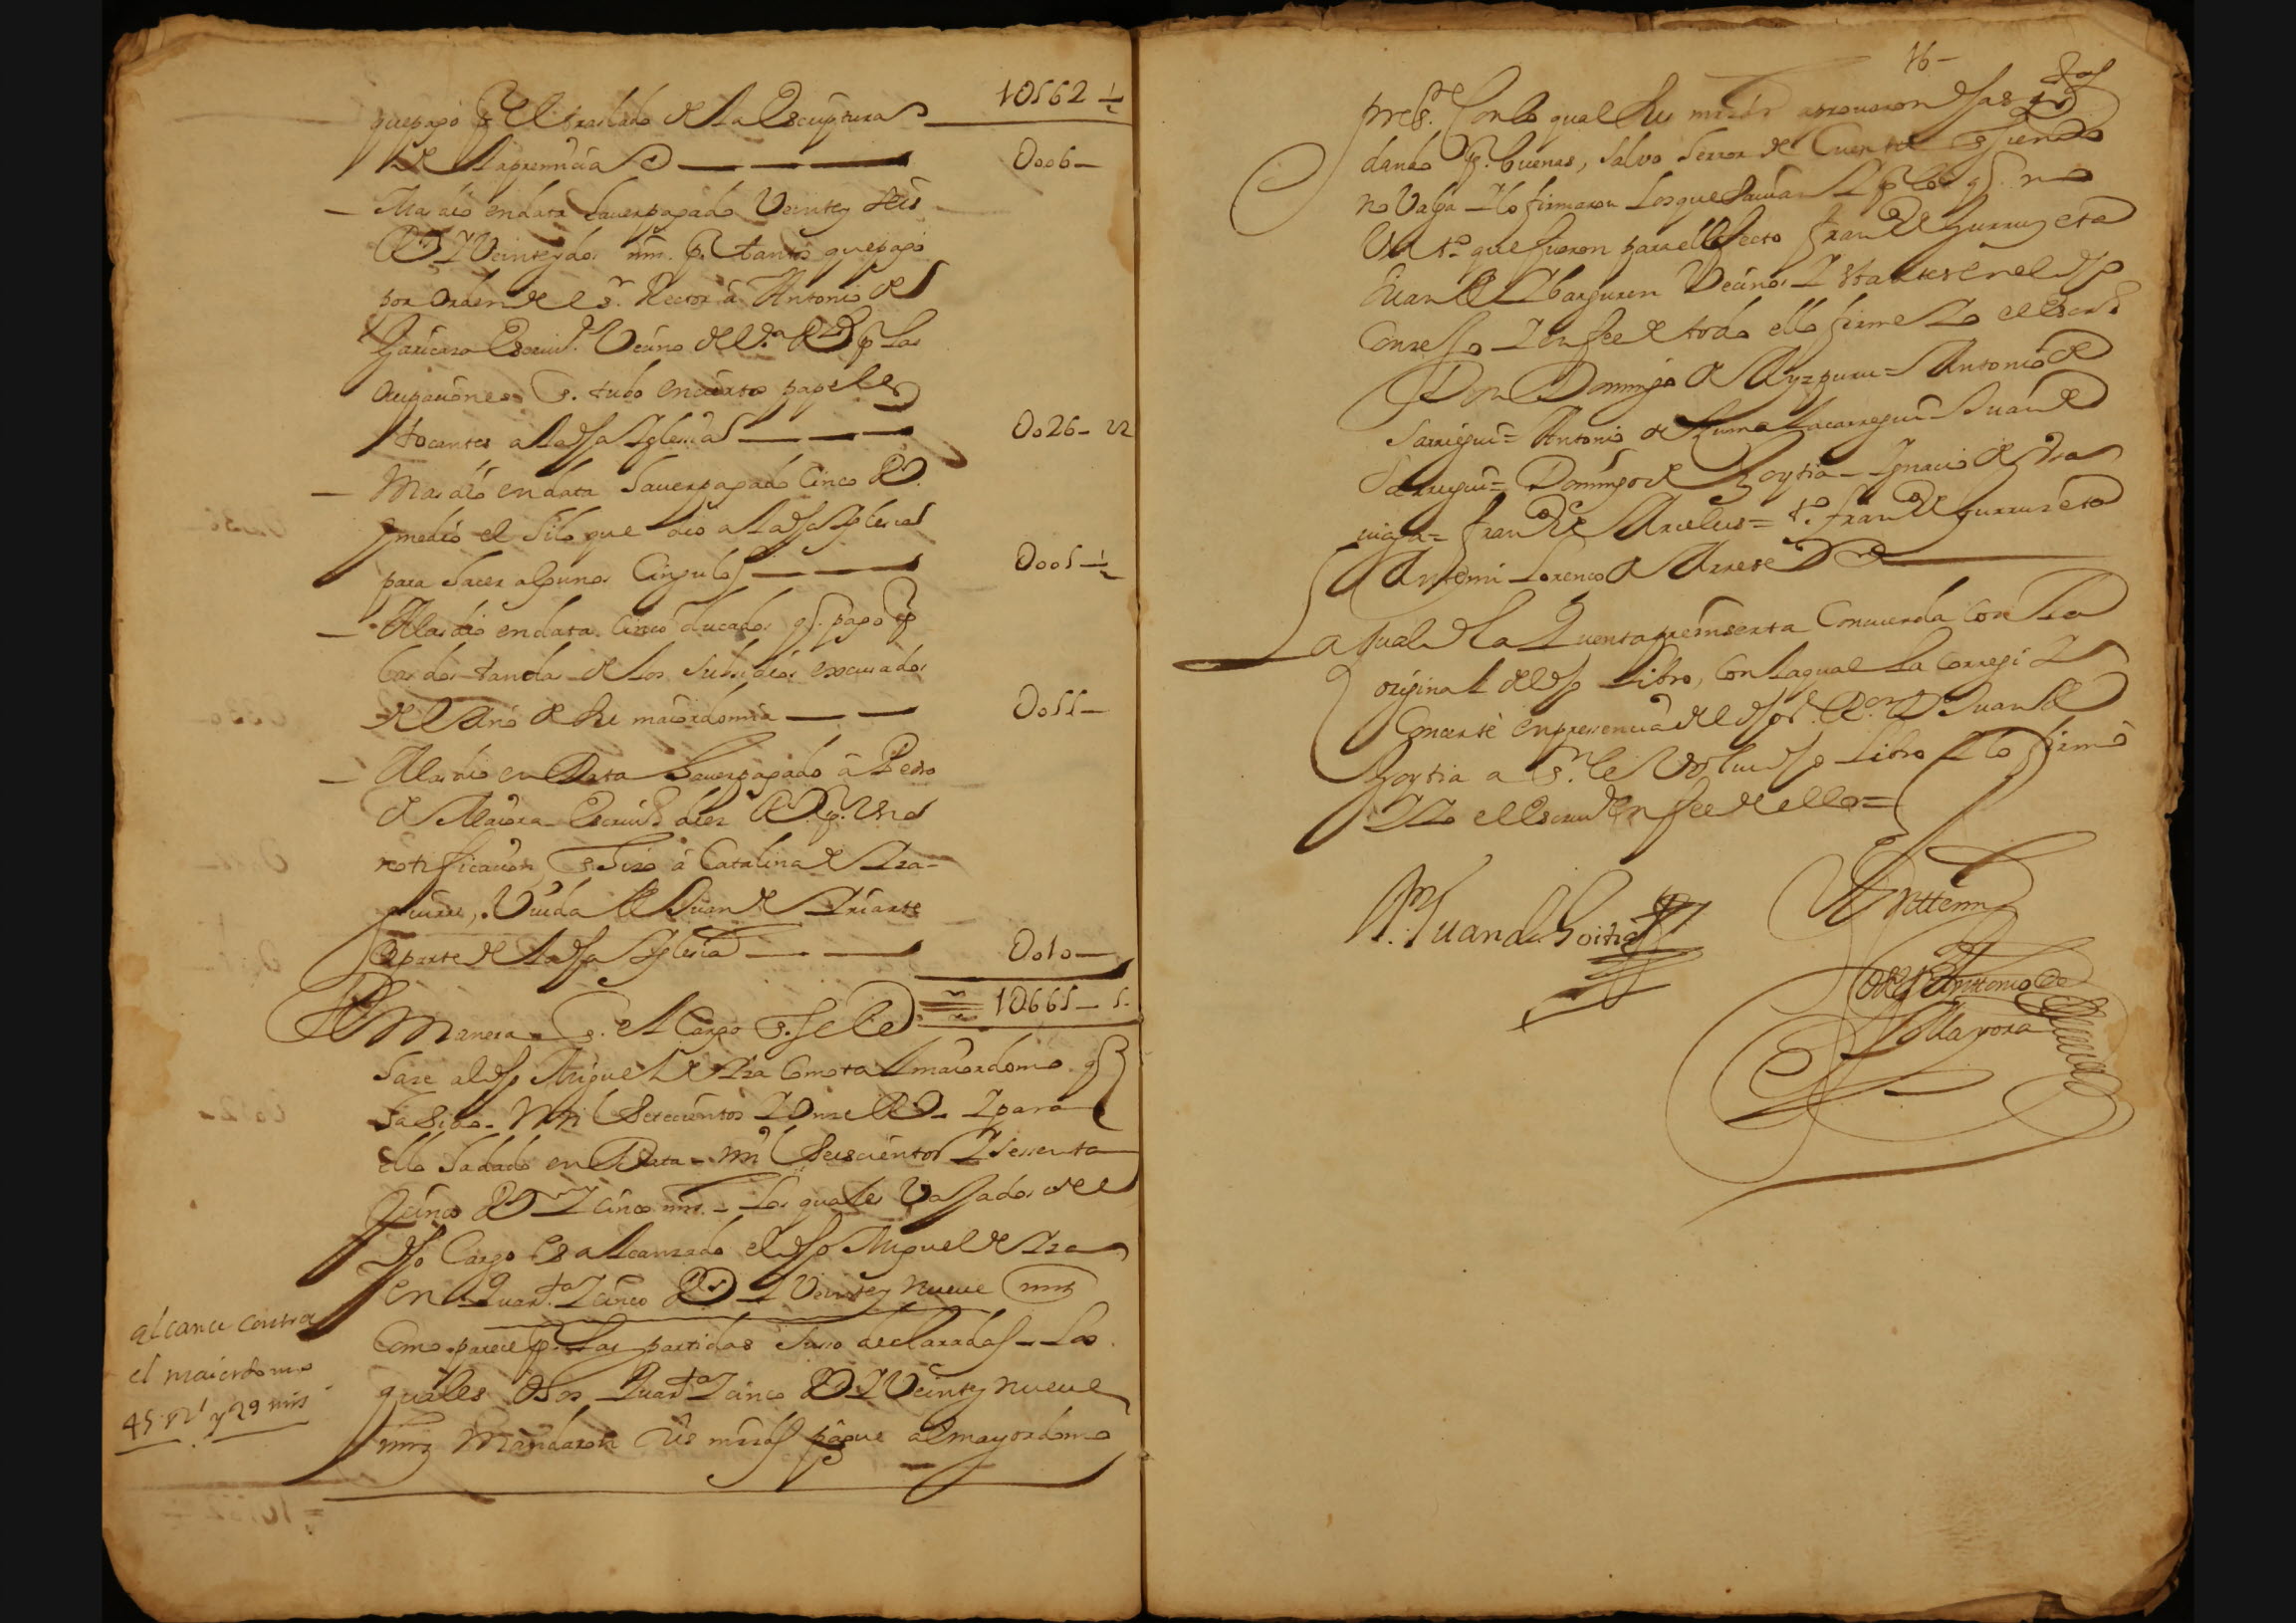 1U562 ½
que pago pr. el traslado de la Escriptura
de la premicia U006-
Mas dio en data hauer pagado Veinte y seis
Rs. y Veinte y dos mrs. pr. tantos que pago
por orden de el sr. Rector â Antonio de
Garicano Escriuo. Vecino de la va. de pr. las
ocupaciones q. tubo en ciertos papeles
tocantes a la dha Iglesia U026-22
Mas dio en data hauer pagado Cinco Rs.
y medio el hilo que dio a la dha Iglesia
para hacer algunos Cingulos U005-½
Mas dio en data Cinco ducados q. pago pr
las dos tandas de los subsidios excusados
de el Año de su maiordomia U055-
Mas dio en Data hauer pagado â Pedro
de Maiora Escriuo. diez Rs. pr. Una
notificacion q. hizo â Catalina de Iza-
guirre, Viuda de Juan de Iriarte
de parte de la dha Iglesia U010-
1U665-5.
De Manera q. el Cargo q. se le
haze al dho Miguel de Iza como tal maiordomo q
ha sido Mil Setecientos y Onze Rs. y para
ello ha dado en Data mil Seiscientos y sesenta
y cinco Rs y cinco mrs. Los quales Vajados del
dho Cargo es alcanzado el dho Miguel de Iza
en Quarta. y cinco Rs y Veinte y nueue mrs
Como parece pr. las partidas suso declaradas Los
quales dhos Quarta. y cinco Rs y Veinte y nueue
mrs Mandaron sus mrds. pague al mayordomo
alcance contra
el maiordomo
45 rs y 29 mrs
16-
preste. Con lo qual sus mrds aprouaron dhas
dando pr. buenas, salvo herror de Cuenta q siendo
no Valga y lo firmaron los que sauian y pr los q. no
Un to. que fueron para el efecto Franco de Gurruzeta
Juan de Ybarguren Vecinos y estantes en el dho
Conzejo y en fee de todo ello firme yo el escriuo.
Don Domingo de Ayzpuru = Antonio de
Sarriegui = Antonio de Zumalacarregui Juan de
Sarriegui = Domingo de Goytia = Ignacio de
Franco de Arcelus = to. Franco de Gurruzeta
Antemi Lorenco de Arrese
La qual dha Quenta preinserta Concuerda con la
original del dho Libro, con la qual la corregi y
Concerte en presencia del dho sr. Ror. Dn Juan de
Goytia a qn. le Volui dho Libro y lo firmo
y yo el Escriuo En fee de ello =
Dn. Juan de Goitia
Anttemi
Antonio de
Mayora